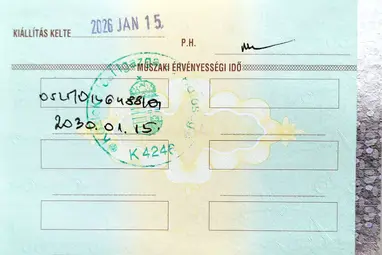 KIÁLLÍTÁS KELTE 2026 JAN 15.
P.H.
MŰSZAKI ÉRVÉNYESSÉGI IDŐ
2030.01.15
K 4248